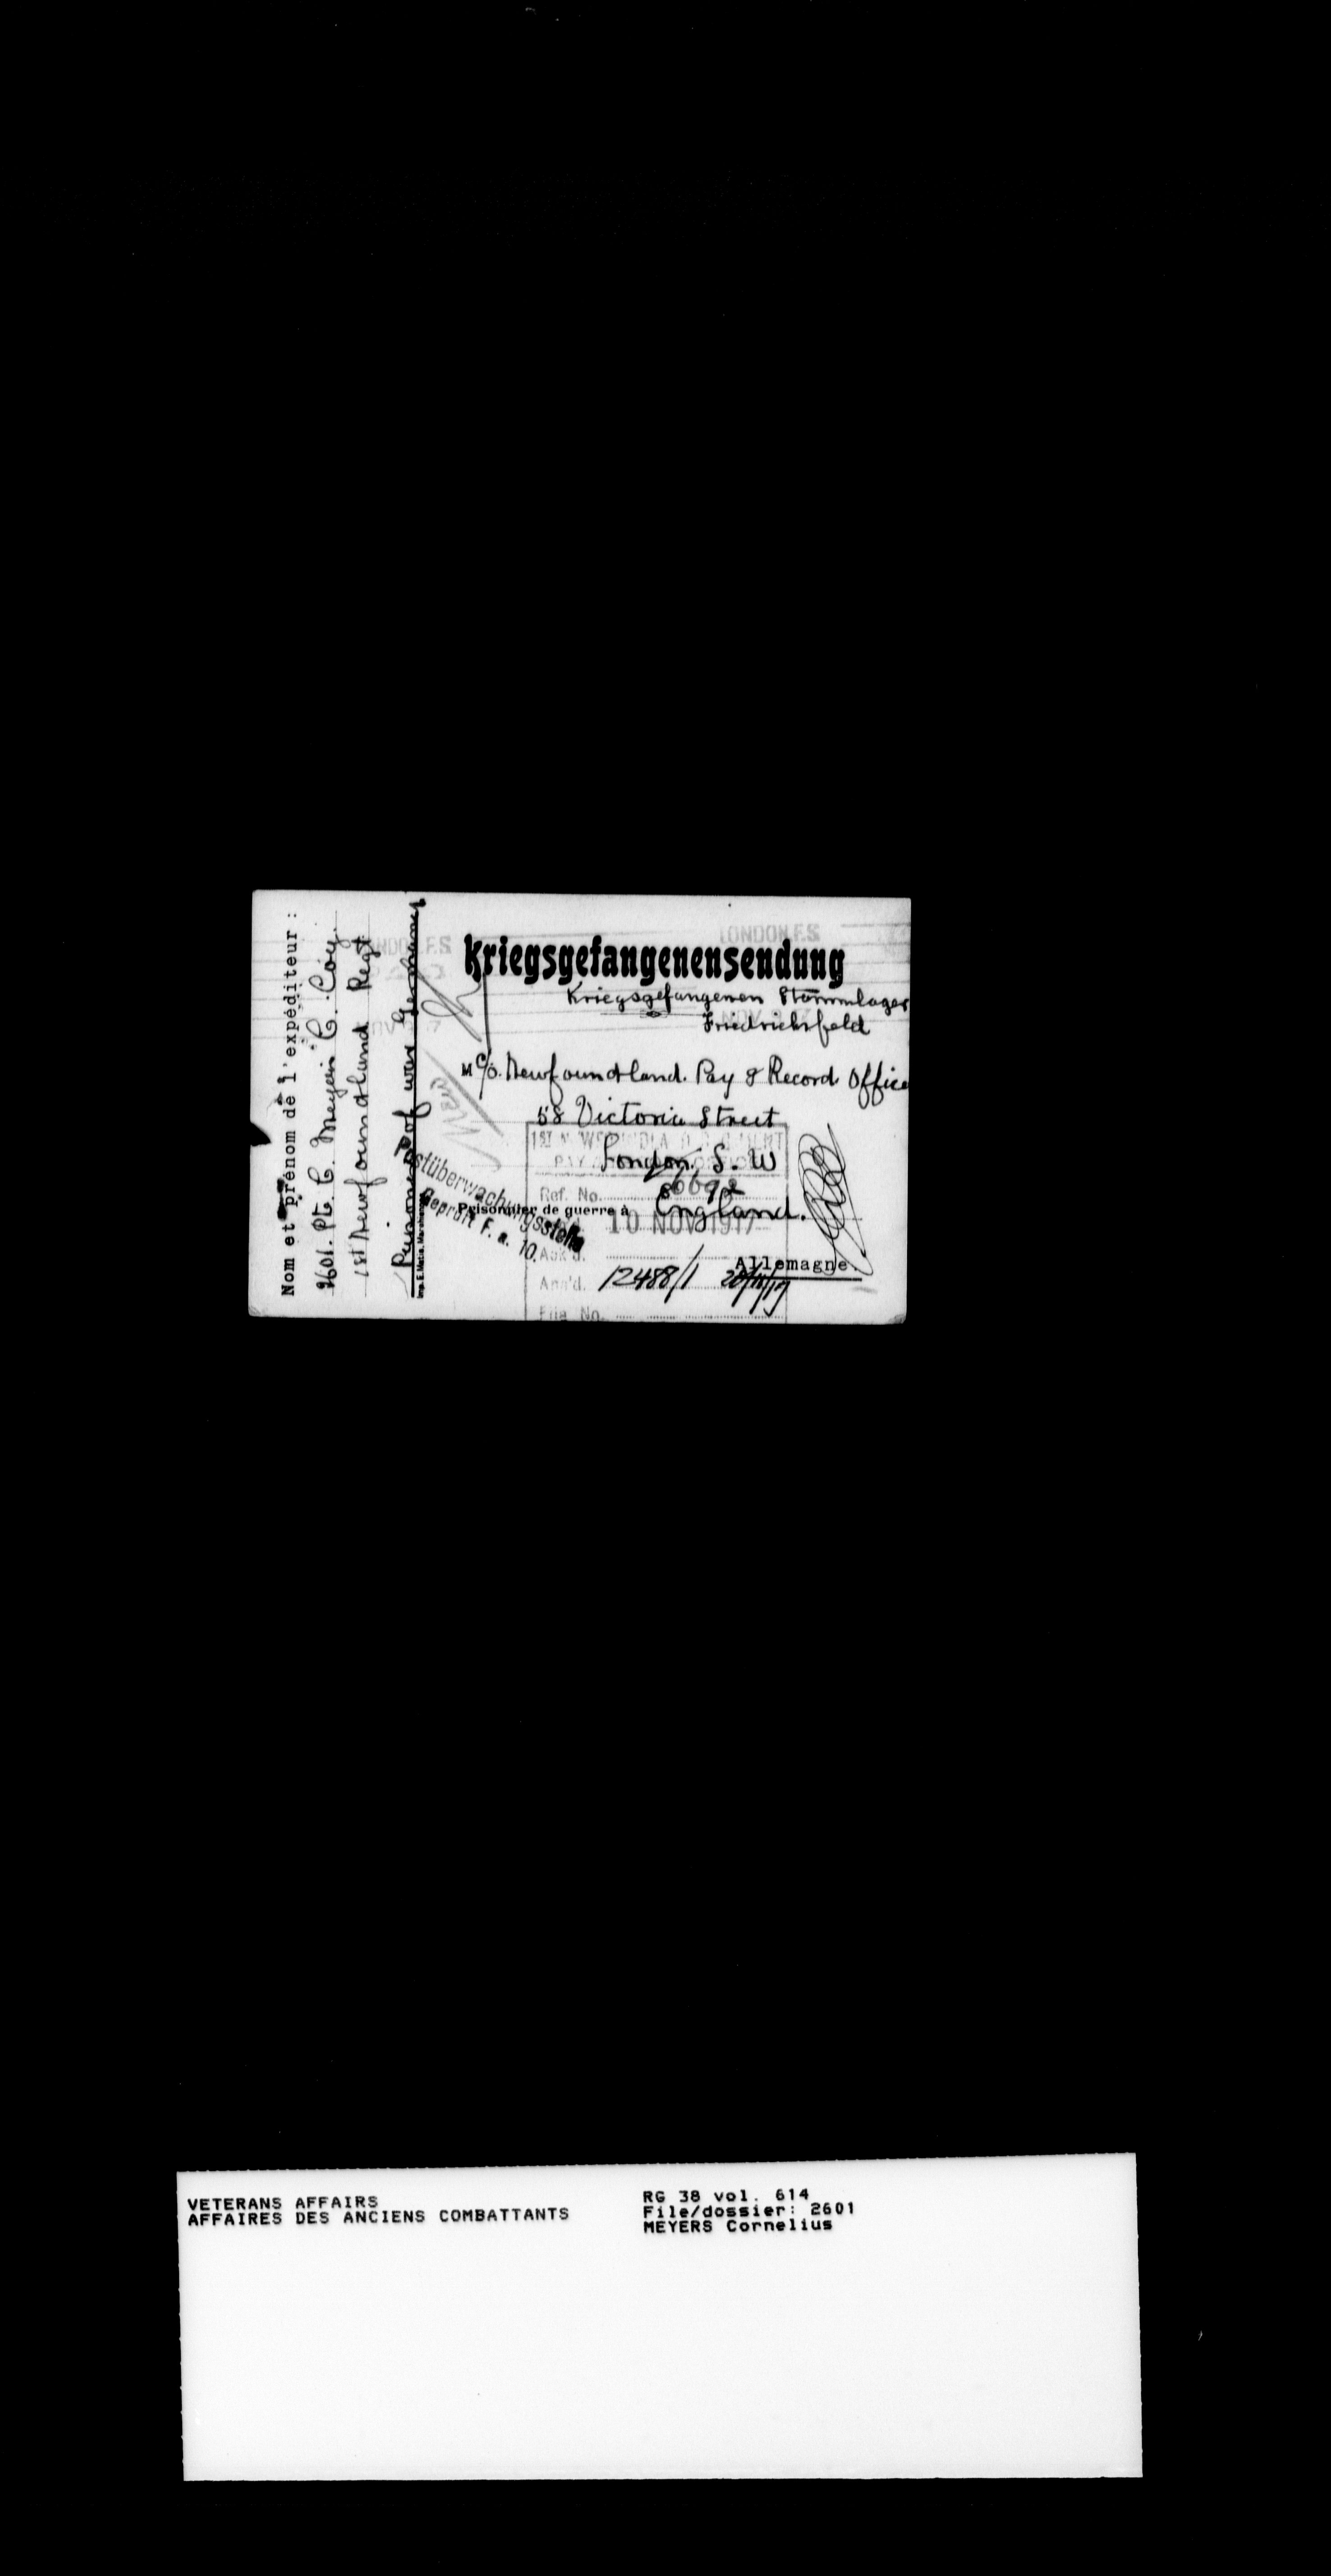 Nom et prénom de l'expéditeur :
2601. Pte C. Meyers C. Coy.
1st Newfoundland Regt
Prisoner of war Germany
Imp. E. Matia. Marchienne
LONDON F.S
LONDON F.S
Kriegsgefangenensendung
Kriegsgefangenen Stammlager
Friedrichsfeld
M c/o. Newfoundland. Pay & Record Office
58 Victoria Street
London, S. W
England.
Postüberwachungsstelle
Geprüft F. a. 10.
Prisonnier de guerre à
Allemagne
PAY
Ref. No. 6692
10 NOV 1917
Ack'd.
Ans'd. 12488/1 20/11/17
File No.
VETERANS AFFAIRS
AFFAIRES DES ANCIENS COMBATTANTS
RG 38 vol. 614
File/dossier: 2601
MEYERS Cornelius